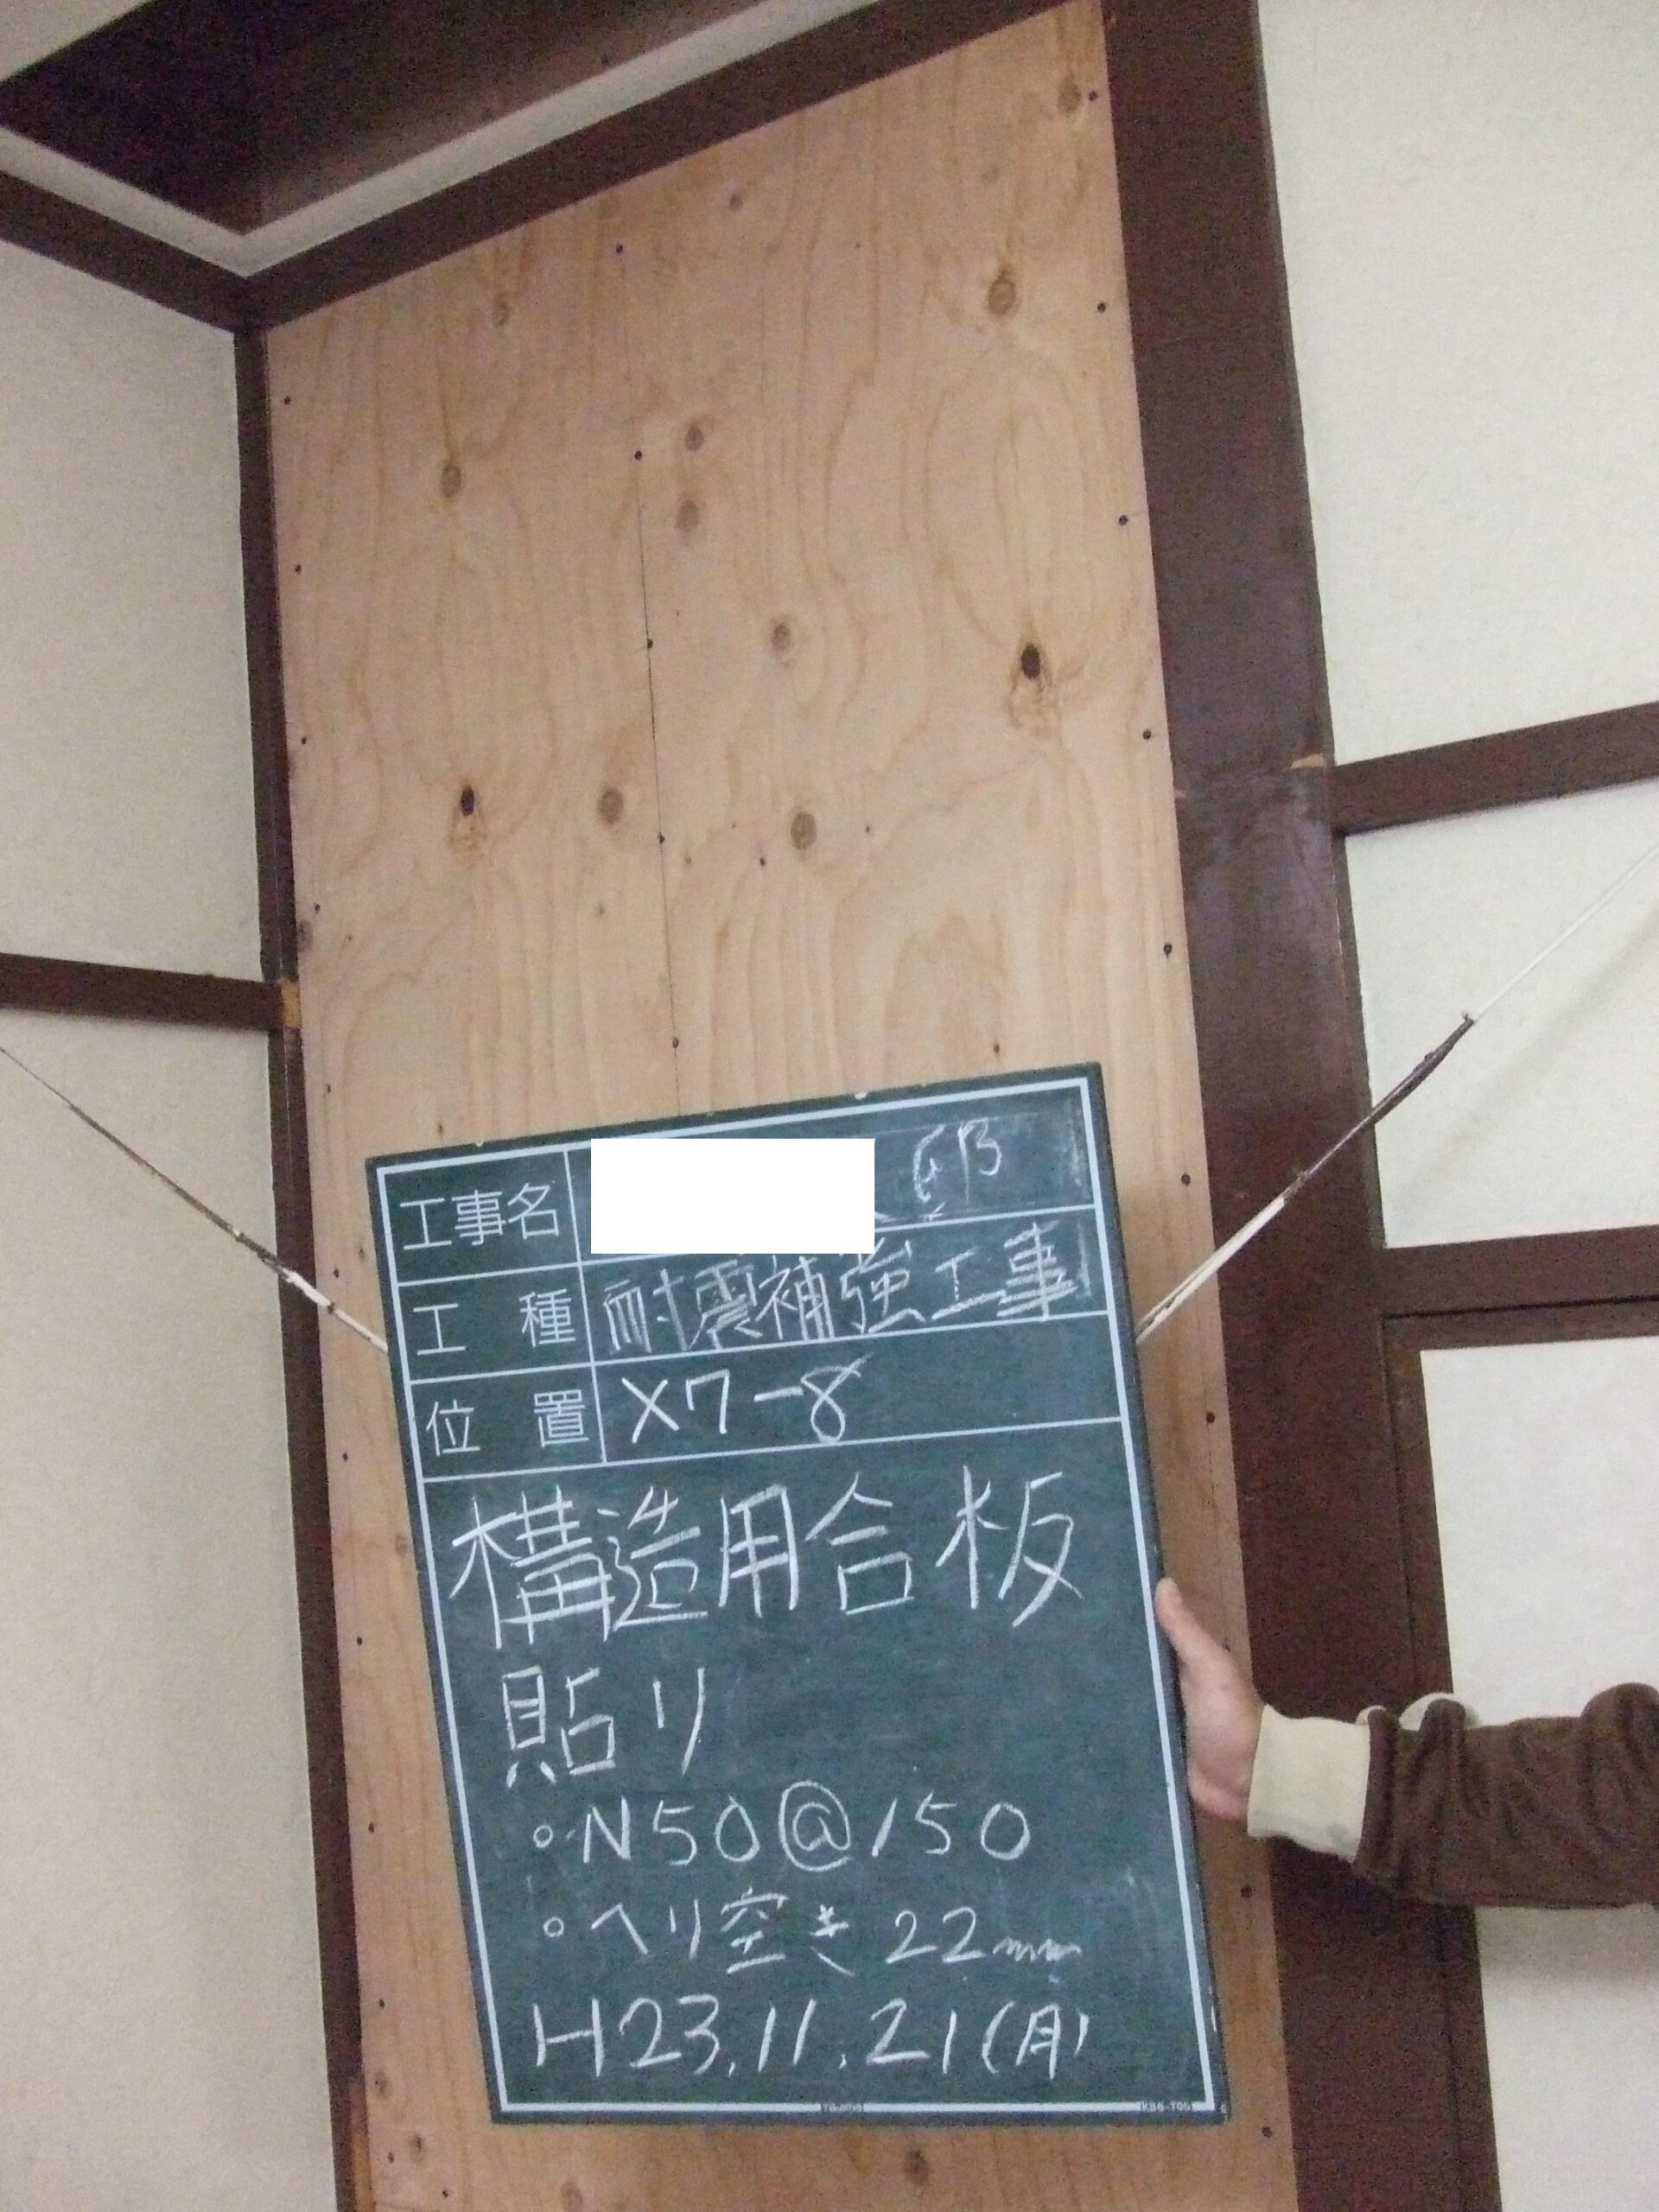 工事名 邸
工種 耐震補強工事
位置 X7-8
構造用合板
貼り
○N50@150
○ヘリ空き22mm
H23.11.21(月)